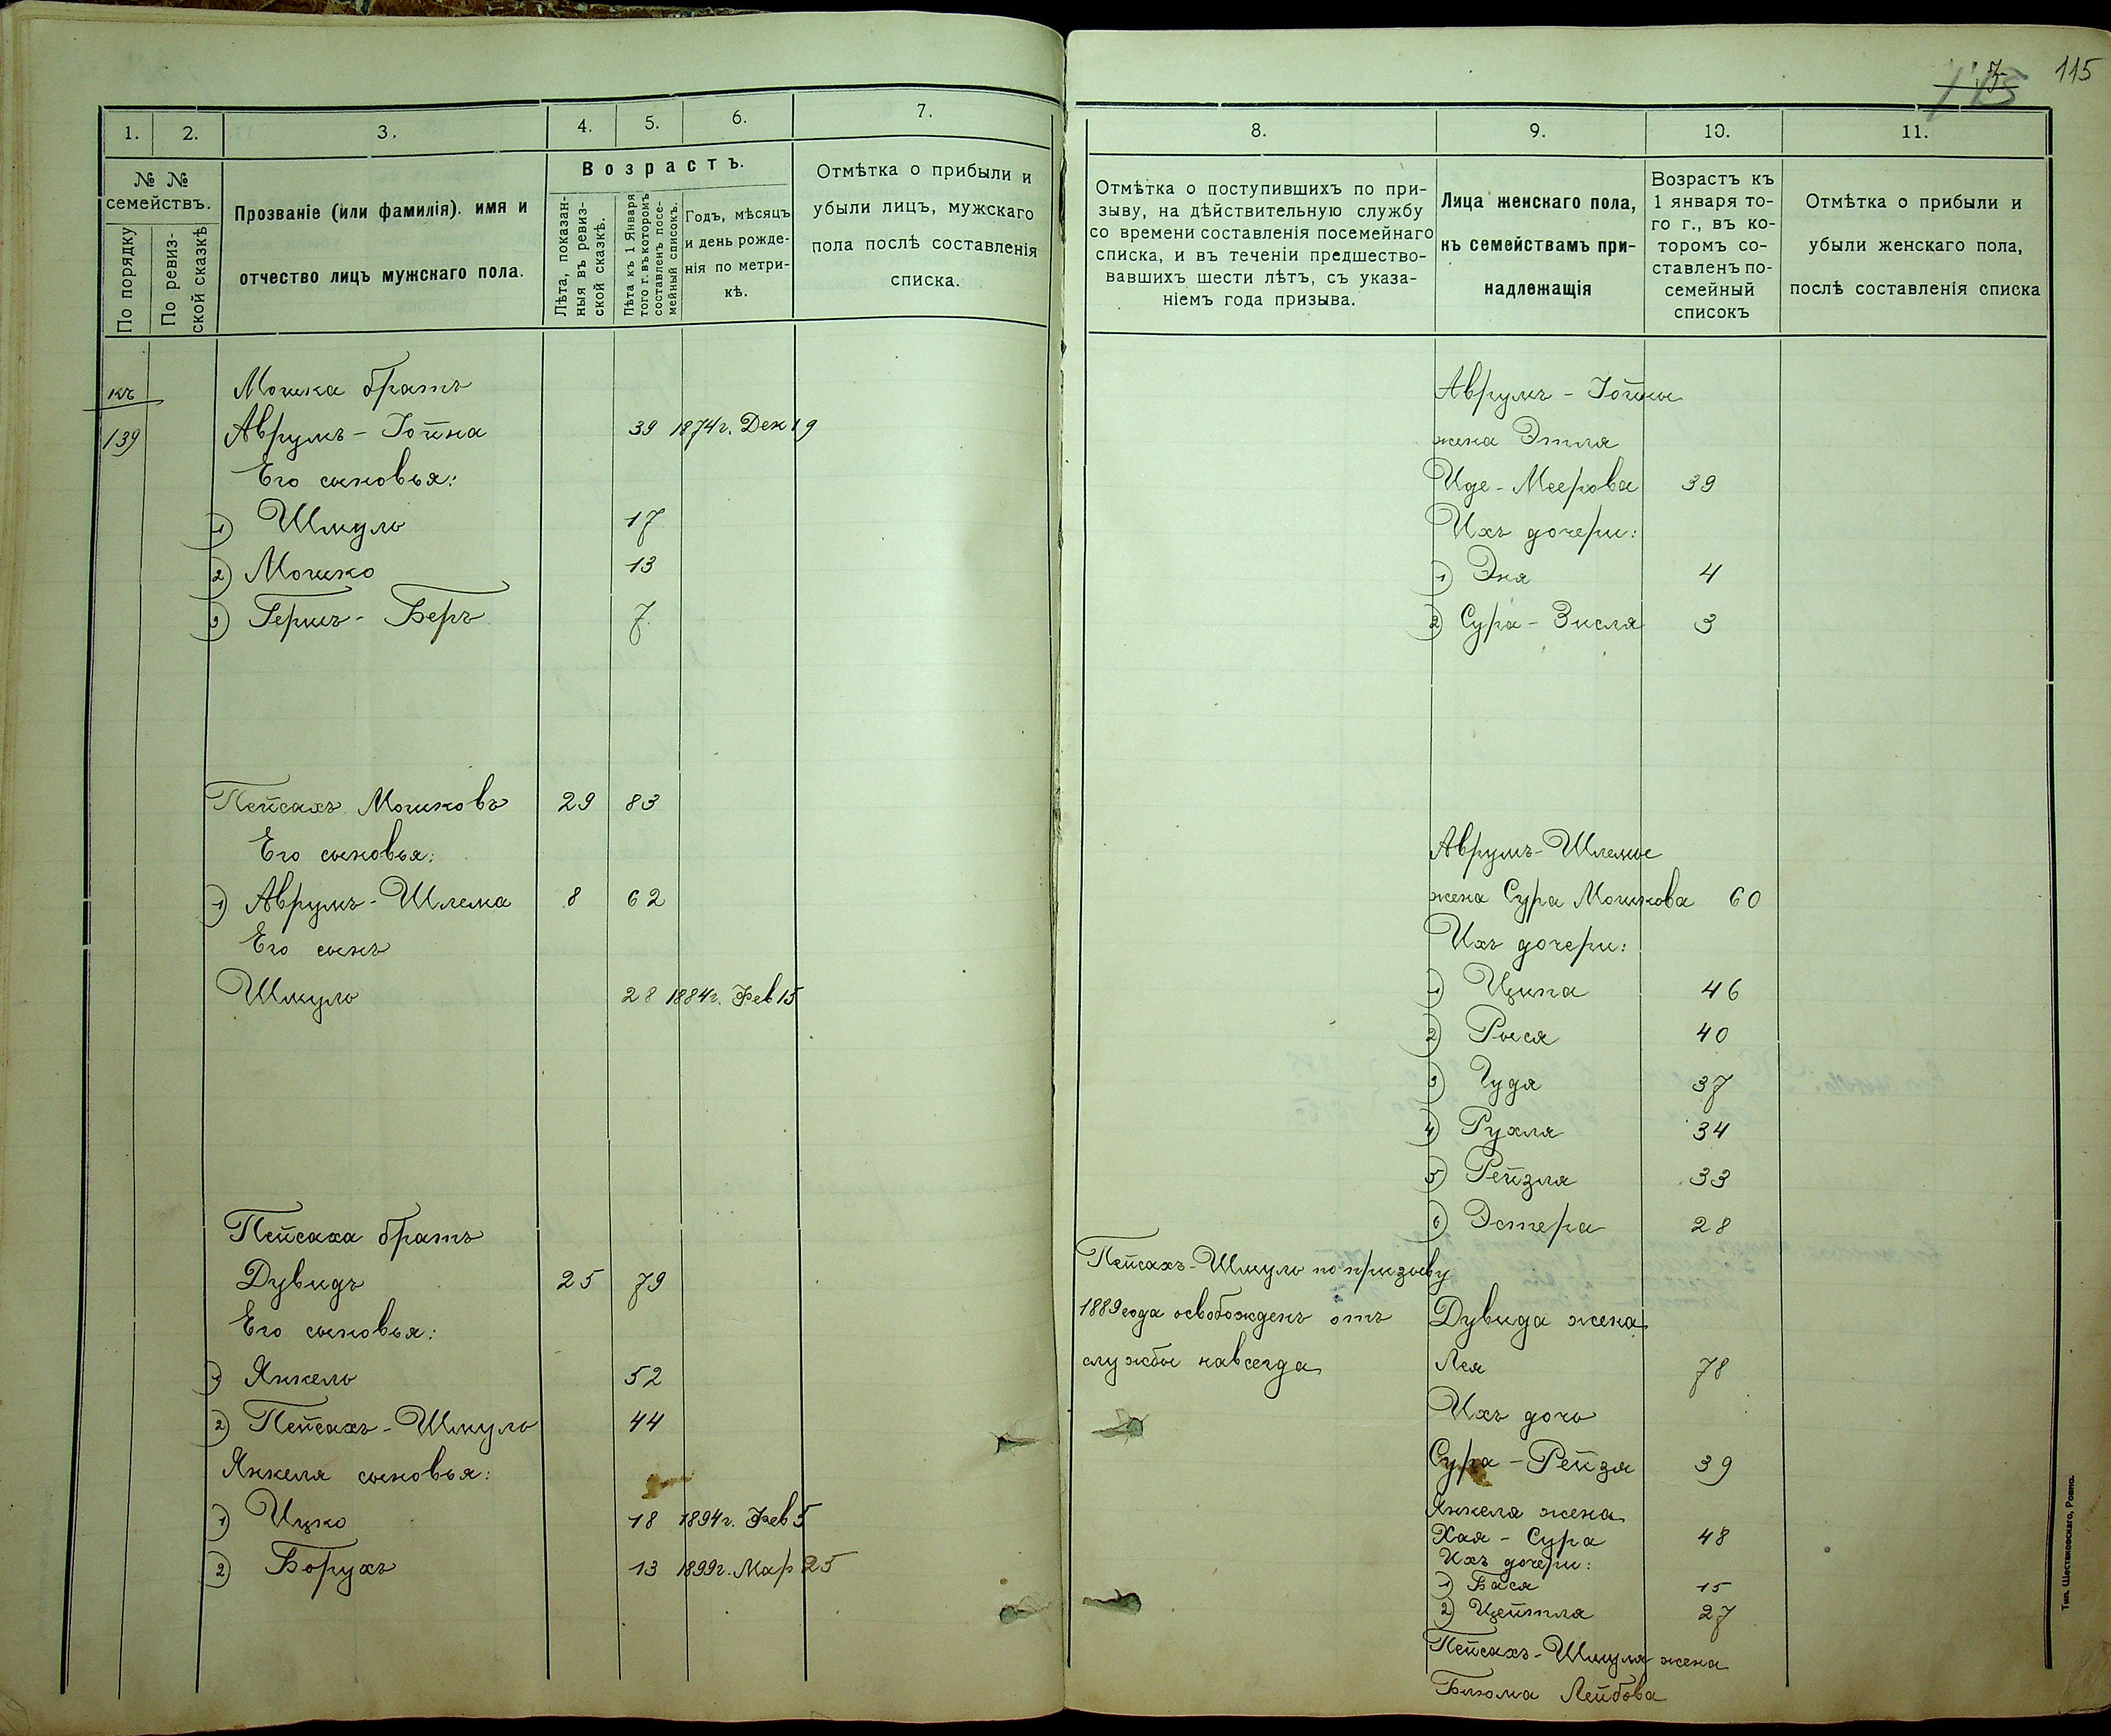 115
1.
2.
3.
4.
5.
6.
7.
№ №
семействъ.
По порядку
По ревиз-
ской сказкѣ
Прозваніе (или фамилія). имя и
отчество лицъ мужскаго пола.
Возрастъ.
Лѣта, показан-
ныя въ ревиз-
ской сказкѣ.
Лѣта къ 1 Января
того г. въ которомъ
составленъ посе-
мейный списокъ.
Годъ, мѣсяцъ
и день рожде-
нія по метри-
кѣ.
Отмѣтка о прибыли и
убыли лицъ, мужскаго
пола послѣ составленія
списка.
къ Мошка братъ
139 Аврумъ-Іойна 39 1874г. Дек 19
Его сыновья:
1) Шмуль 17
2) Мошко 13
3) Гершъ-Беръ 7
Пейсахъ Мошковъ 29 83
Его сыновья:
1) Аврумъ-Шлема 8 62
Его сынъ
Шмуль 28 1884г. Фев 15
Пейсаха братъ
Дувидъ 25 79
Его сыновья:
1) Янкель 52
2) Пейсахъ-Шмуль 44
Янкеля сыновья:
1) Ицко 18 1894г. Фев 5
2) Борухъ 13 1899г. Мар 25
8.
9.
10.
11.
Отмѣтка о поступившихъ по при-
зыву, на дѣйствительную службу
со времени составленія посемейнаго
списка, и въ теченіи предшество-
вавшихъ шести лѣтъ, съ указа-
ніемъ года призыва.
Лица женскаго пола,
къ семействамъ при-
надлежащія
Возрастъ къ
1 января то-
го г., въ ко-
торомъ со-
ставленъ по-
семейный
списокъ
Отмѣтка о прибыли и
убыли женскаго пола,
послѣ составленія списка
Аврумъ-Іойны
жена Этля
Иде-Меерова 39
Ихъ дочери:
1) Эня 4
2) Сура-Зисля 3
Аврумъ-Шлемы
жена Сура Мошкова 60
Ихъ дочери:
1) Ципа 46
2) Рыся 40
3) Гудя 37
4) Рухля 34
5) Рейзля 33
6) Эстера 28
Пейсахъ-Шмуль по призыву
1889 года освобожденъ отъ
службы навсегда
Дувида жена
Лея 78
Ихъ дочь
Сура-Рейзя 39
Янкеля жена
Хая-Сура 48
Ихъ дочери:
1) Бася 15
2) Цейтля 27
Пейсахъ-Шмуля жена
Блюма Лейбова
Тип. Шестаковскаго, Ровно.